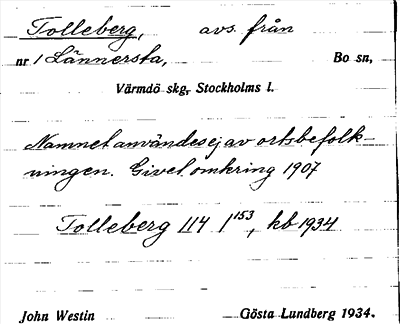 Tolleberg, avs. från
nr 1 Lännersta, Bo sn,
Värmdö skg, Stockholms l.
Namnet användes ej av ortsbefolk-
ningen. Givet omkring 1907
Tolleberg 114 1¹⁵³, kb 1934
John Westin Gösta Lundberg 1934.